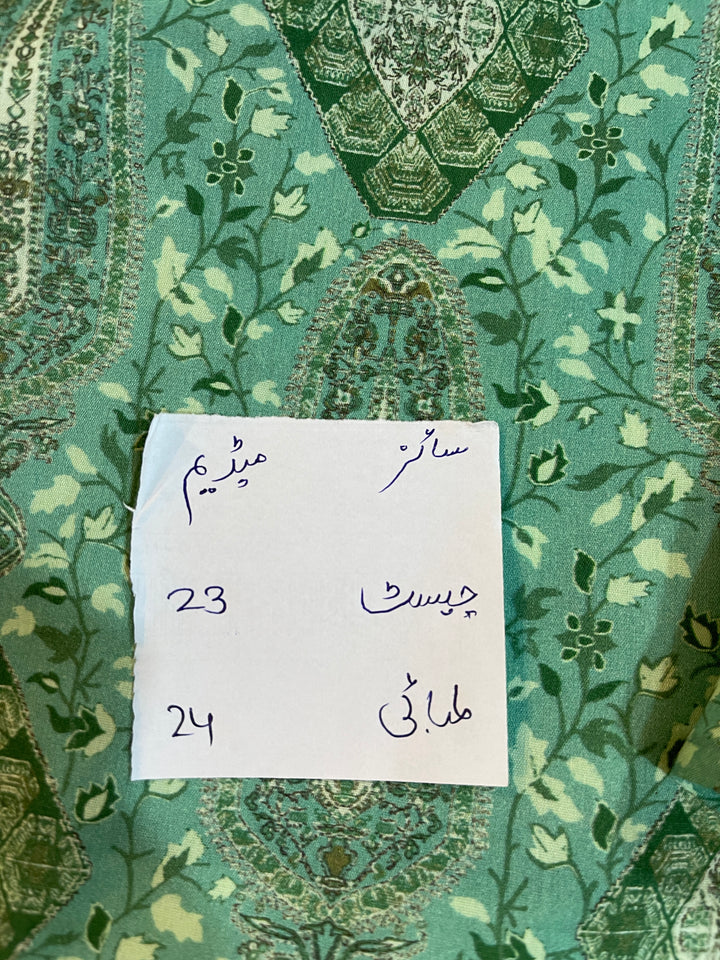 سائز میڈیم
چیسٹ 23
لمبائی 24